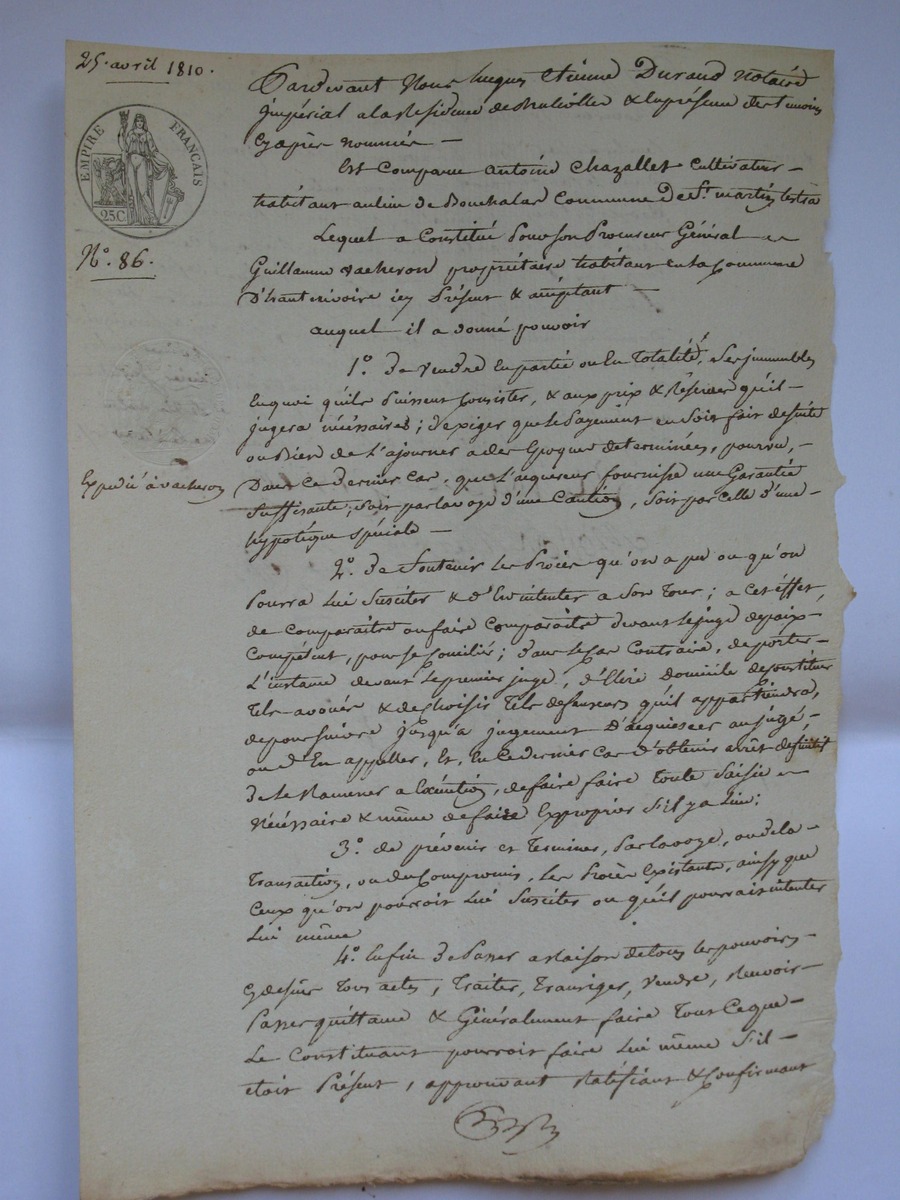 25. avril 1810.
EMPIRE FRANÇAIS
25C
N°. 86.
Expedié à vacheron
Pardevant Nous hugues Etienne Durand notaire
impérial a la Residence de & en presence des temoins
Cy après nommés —
Est Comparu antoine Chazallet Cultivateur —
habitant au lieu de Bouchalas Commune de St. martin lestra
Lequel a Constitué Pour son Procureur Général
Guillaume vacheron propriétaire habitant en la Commune
D'hauterivoire icy Présent & acceptant —
auquel il a donné pouvoir
1°. De Vendre En partie ou En Totalité, Ses immeubles
En quoi qu'ils Puissent Consister, & aux prix & Réserves qu'il —
jugera nécéssaires; d'exiger que le Payement en Soit fait de suite
ou Bien de L'ajourner a des Epoques determinées, pourvu, —
Dans ce dernier Cas, que L'aquereur fournisse une Garantie
Suffisante, Soit par la voye d'une Caution, Soit par Celle d'une —
hypotéque spéciale —
2°. De Soutenir les Procès qu'on a pu ou qu'on
Pourra Lui Susciter & d'En intenter a Son Tour; a cet éffet,
de comparaître ou faire Comparaître devant le juge de paix —
Compétent, pour se Concilier; dans le Cas Contraire, de porter —
L'instance devant Le premier juge, d'Elire domicile de constituer
Tels avoués & de choisir Tels defenseurs qu'il appartiendra,
de poursuivre jusqu'a jugement D'acquiescer au jugé, —
ou d'En appeller, Et, En Ce dernier Cas d'obtenir arrêt definitif
De le Ramener a Exécution, de faire faire Toute Saisie
Nécéssaire & même de faire Exproprier S'il y a Lieu;
3°. de prévenir et Terminer, Par la voye, ou de la —
Transaction, ou du Compromis, Les Procès Existants, ainsy que
Ceux qu'on pourroit Lui Susciter ou qu'il pourrait intenter
Lui même
4°. Enfin De Passer a Raison de tous les pouvoirs
Cy dessus Tous actes, Traiter, Transiger, Vendre, Recevoir —
Passer quittance & Généralement faire Tout Ce que —
Le Constituant pourroit faire Lui même S'il —
étoit Présent, approuvant Ratifiant & Confirmant